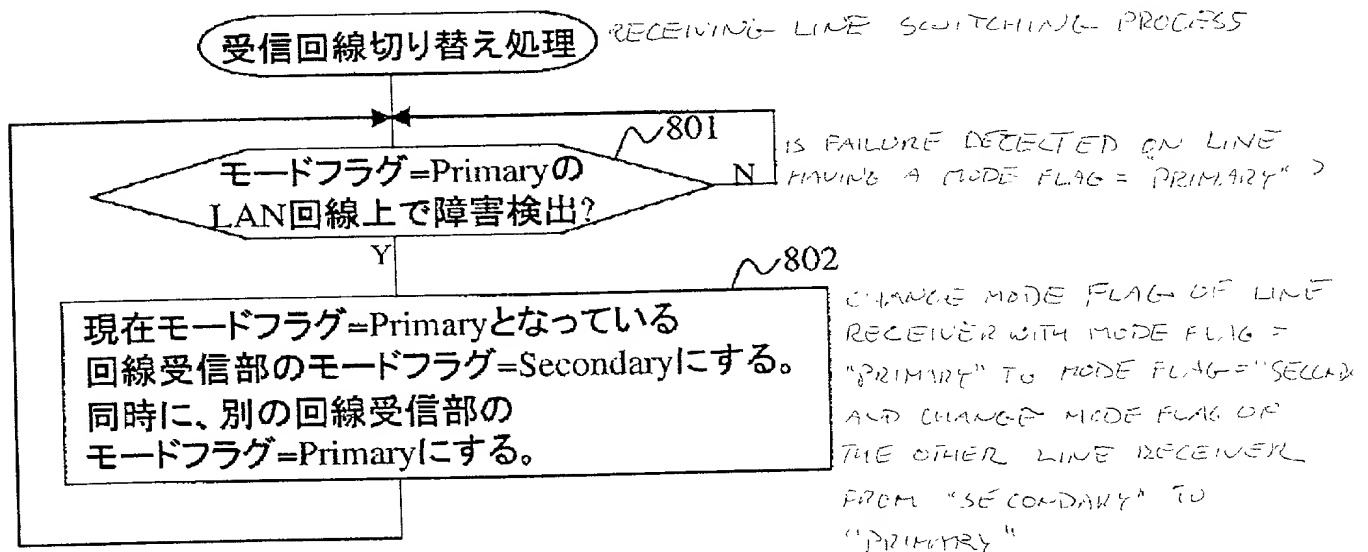 受信回線切り替え処理
RECEIVING LINE SWITCHING PROCESS
801
モードフラグ=Primaryの
LAN回線上で障害検出?
N
Y
IS FAILURE DETECTED ON LINE
HAVING A MODE FLAG = "PRIMARY" ?
802
現在モードフラグ=Primaryとなっている
回線受信部のモードフラグ=Secondaryにする。
同時に、別の回線受信部の
モードフラグ=Primaryにする。
CHANGE MODE FLAG OF LINE
RECEIVER WITH MODE FLAG =
"PRIMARY" TO MODE FLAG =
AND CHANGE MODE FLAG OF
THE OTHER LINE RECEIVER
FROM "SECONDARY" TO
"PRIMARY"